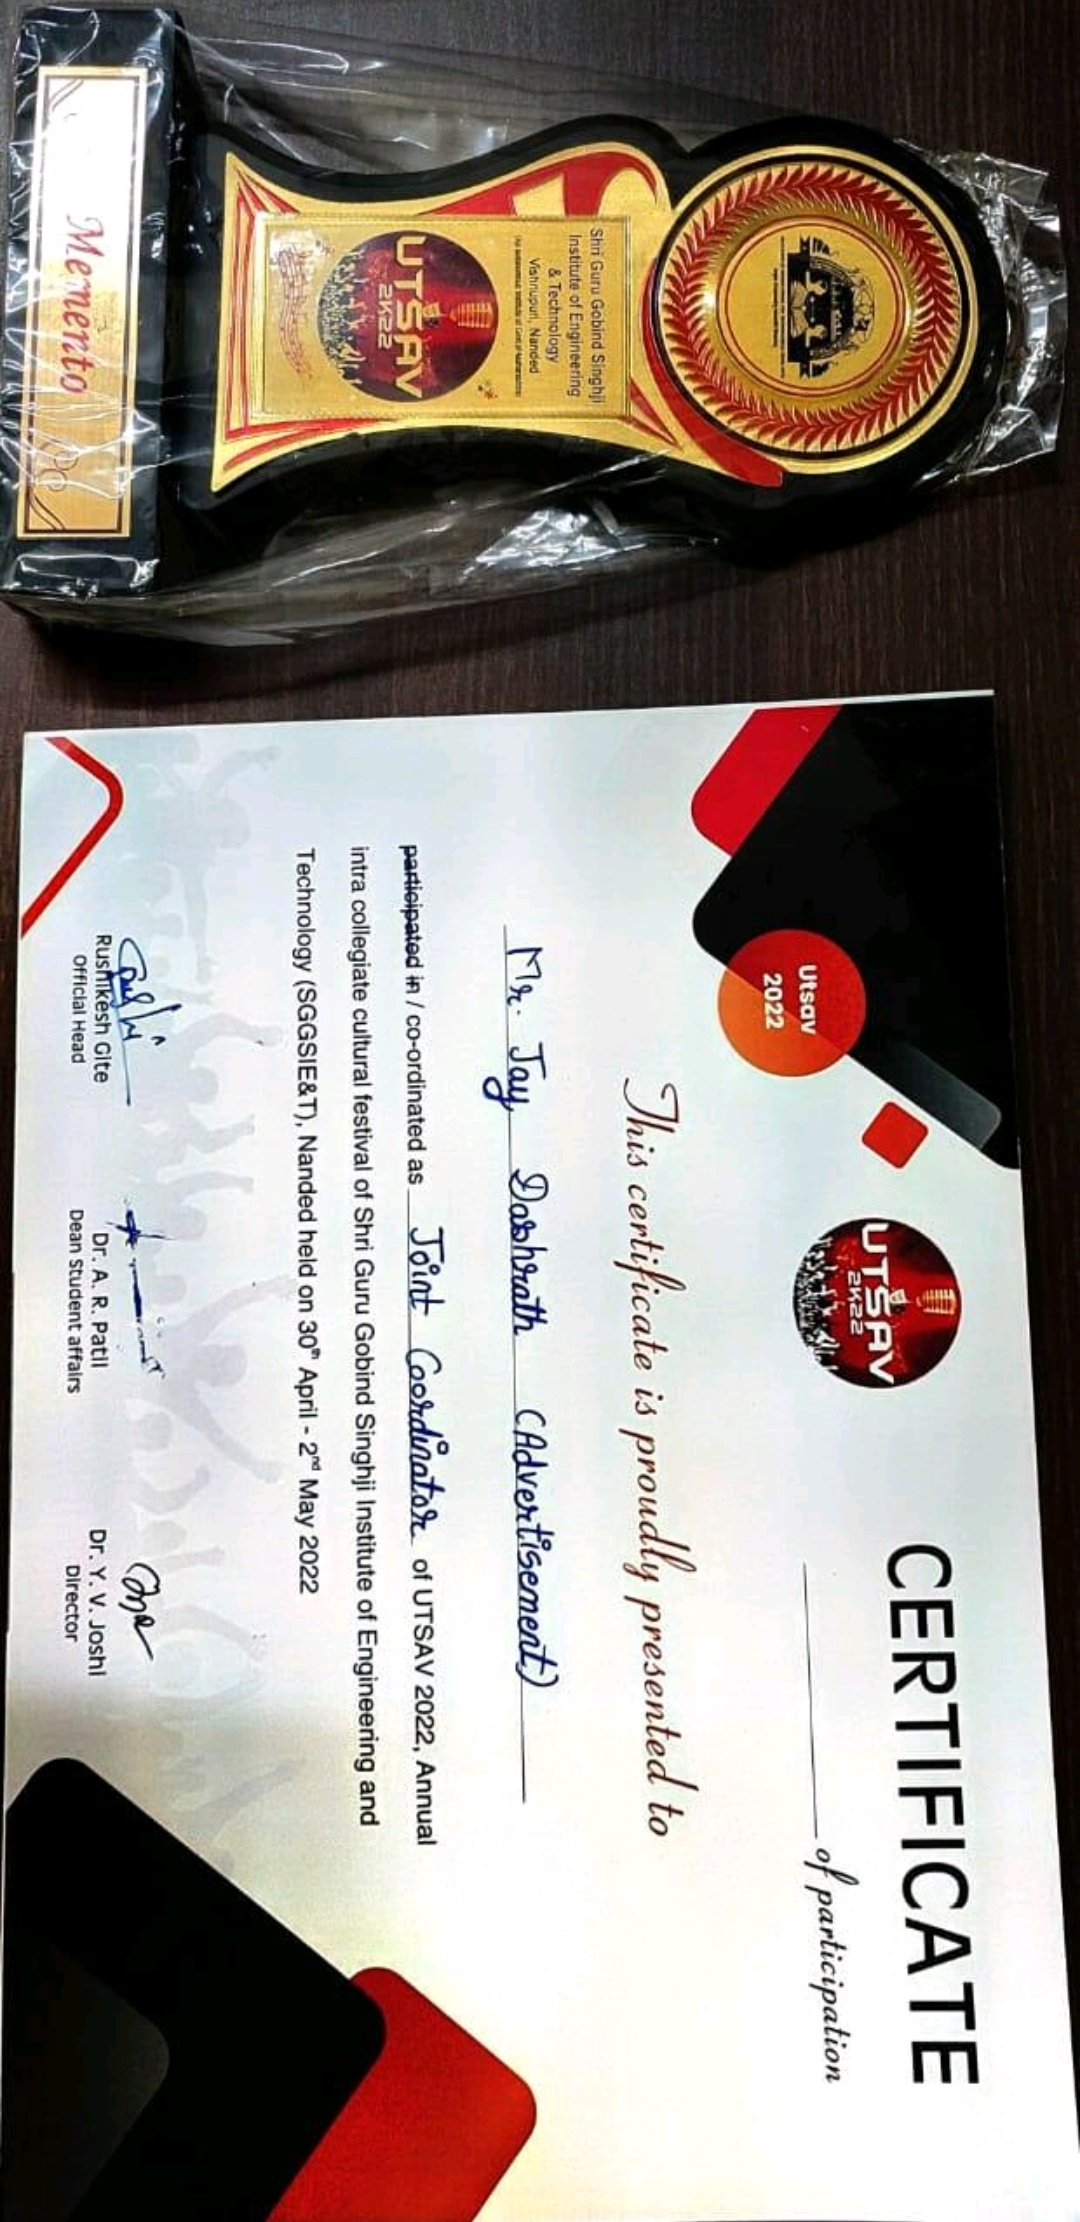 Shri Guru Gobind Singhji
Institute of Engineering
& Technology
Vishnupuri, Nanded
UTSAV
2K22
Memento
Utsav
2022
UTSAV
2K22
CERTIFICATE
of participation
This certificate is proudly presented to
Mr. Jay Dashrath (Advertisement)
participated in / co-ordinated as Joint Coordinator of UTSAV 2022, Annual
intra collegiate cultural festival of Shri Guru Gobind Singhji Institute of Engineering and
Technology (SGGSIE&T), Nanded held on 30th April - 2nd May 2022
Rushikesh Gite
Official Head
Dr. A. R. Patil
Dean Student affairs
Dr. Y. V. Joshi
Director